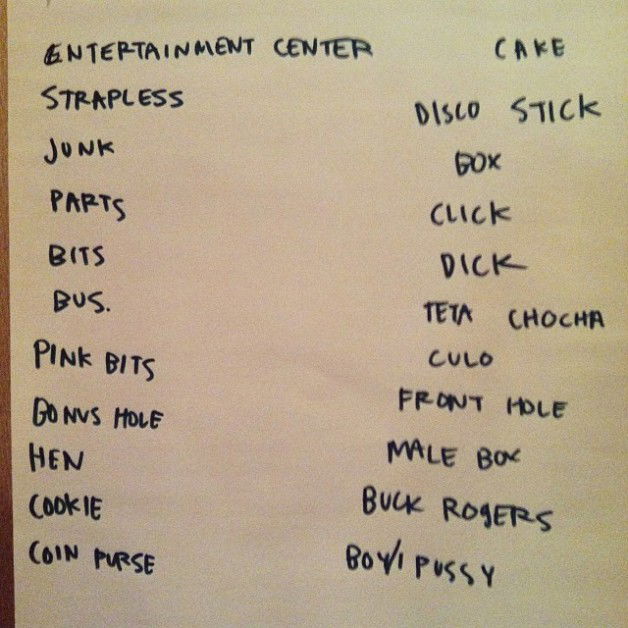 ENTERTAINMENT CENTER
STRAPLESS
JUNK
PARTS
BITS
BUS.
PINK BITS
BONUS HOLE
HEN
COOKIE
COIN PURSE
CAKE
DISCO STICK
BOX
CLICK
DICK
TETA CHOCHA
CULO
FRONT HOLE
MALE BOX
BUCK ROGERS
BOY/I PUSSY